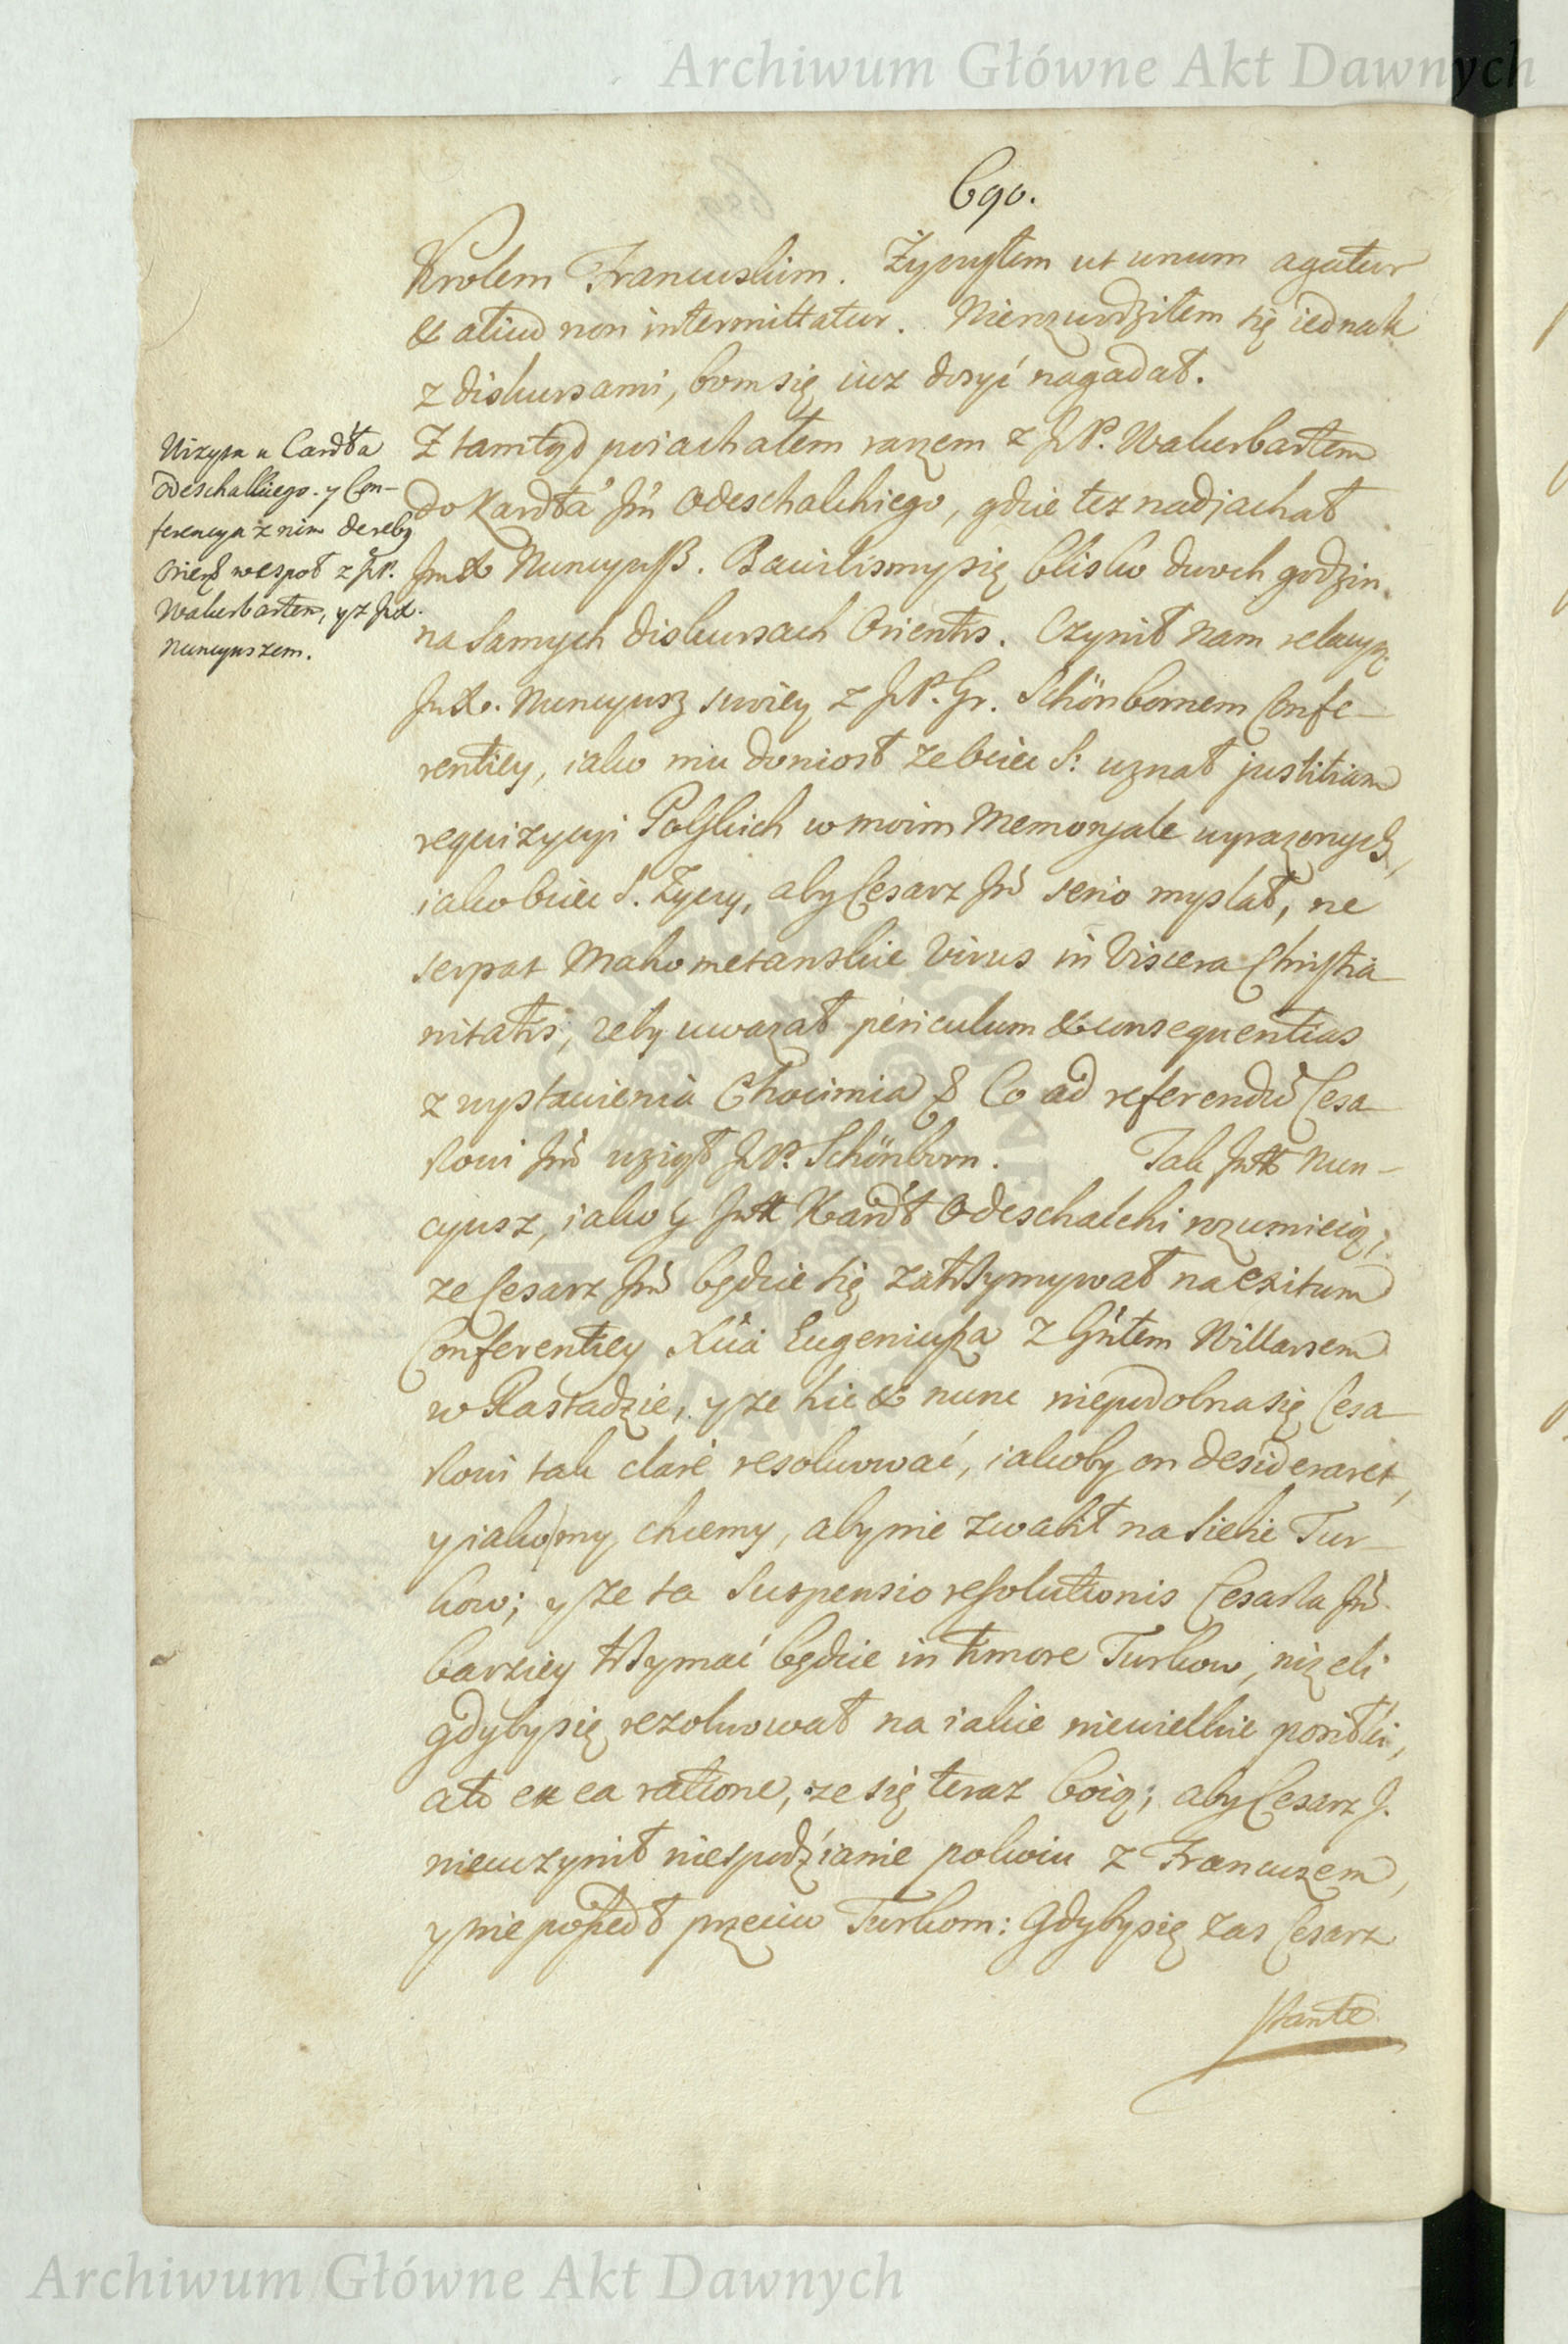 Archiwum Główne Akt Dawnych
690.
Krolem Francuskim. Życzyłem ut unum agatur
& aliud non intermittatur. Nierozwodziłem się iednak
z diskursami, bom się iuz dosyć nagadał.
Z tamtąd poiachałem razem z JP. Wakerbartem
do Kardła Jm̃ Odeschalchiego, gdzie tez nadjachał
JmX Nuncyuß. Bawilismy się blisko dwoch godzin
na samych diskursach Orientis. Czynił nam relacyą
JmX. Nuncyusz swoiey z JP. Gr. Schönbornem Confe-
rentiey, iako mu doniosł ze Ociec S: uznał justitiam
requizycyi Polskich w moim Memoryale wyrazonych,
iako Ociec S. Życzy, aby Cesarz Jm̃ serio myslał, ne
serpat Mahometanskie virus in Viscera Christia-
nitatis, zeby uwazał periculum & consequentias
z wystawienia Chocimia & Co ad referendũ Cesa-
rzowi Jm̃ wziął JP. Schönborn. Tak JmX Nun-
cyusz, iako y JmX Kardł Odeschalchi rozumieią,
ze Cesarz Jm̃ będzie się zatrzymywał na exitum
Conferentiey Xcia Eugeniusza z Gñłem Willarsem
w Rastadzie, y ze hic & nunc niepodobna się Cesa-
rzowi tak clarè resolwować, iakoby on desideraret,
y iako my chcemy, aby nie zwalił na siebie Tur-
kow; y ze ta suspensio resolutionis Cesarza Jm̃
barziey trzymać będzie in timore Turkow, nizeli
gdyby się rezolwował na iakie niewielkie posiłki,
a to ex ea ratione, ze się teraz boią; aby Cesarz J.
nieuczynił niespodzianie pokoiu z Francuzem,
y nie poszedł przeciw Turkom: Gdyby się zas Cesarz
stante
Wizyta u Cardła
Odeschalkiego. y Con-
ferencya z nim de reb9
Orient wespoł z JP.
Wakerbartem, y z JmX.
Nuncyuszem.
Archiwum Główne Akt Dawnych